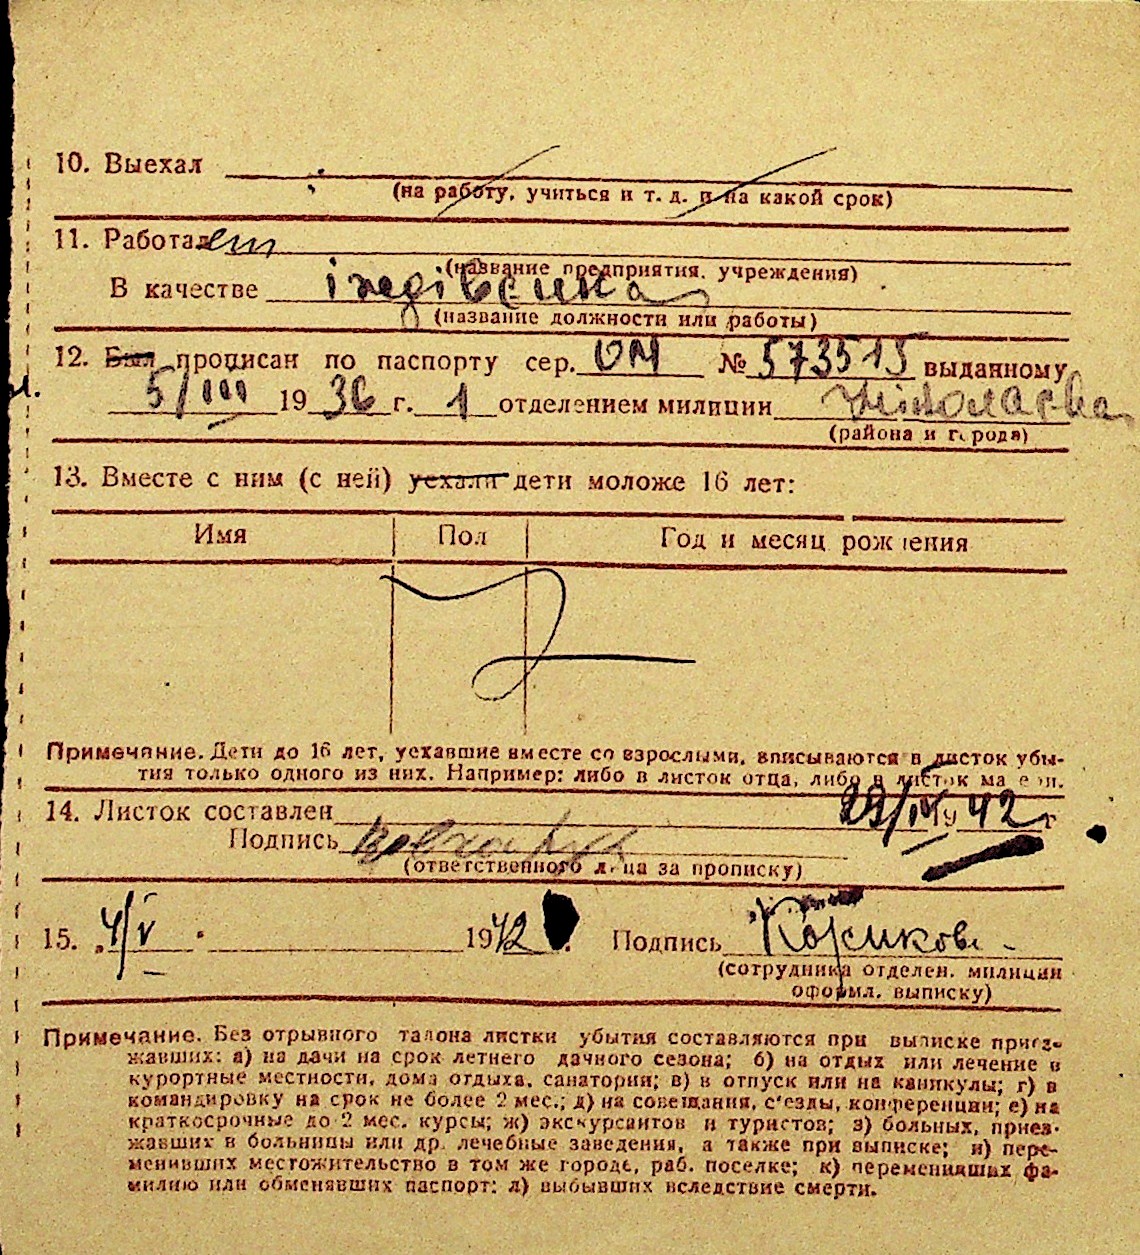 10. Выехал
(на работу, учиться и т. д. и на какой срок)
11. Работает
(название предприятия, учреждения)
В качестве
(название должности или работы)
12. Был прописан по паспорту сер. ОМ № 573515 выданному
5/III 1936 г. 1 отделением милиции Ніколаєва
(района и города)
13. Вместе с ним (с ней) уехали дети моложе 16 лет:
Имя Пол Год и месяц рождения
Примечание. Дети до 16 лет, уехавшие вместе со взрослыми, вписываются в листок убы-
тия только одного из них. Например: либо в листок отца, либо в листок матери.
14. Листок составлен 29/IV 42 г
Подпись
(ответственного лица за прописку)
15. „4/V 1942 г. Подпись
(сотрудника отделен. милиции
оформл. выписку)
Примечание. Без отрывного талона листки убытия составляются при выписке приез-
жавших: а) на дачи на срок летнего дачного сезона; б) на отдых или лечение в
курортные местности, дома отдыха, санатории; в) в отпуск или на каникулы; г) в
командировку на срок не более 2 мес.; д) на совещания, с'езды, конференции; е) на
краткосрочные до 2 мес. курсы; ж) экскурсантов и туристов; з) больных, приез-
жавших в больницы или др. лечебные заведения, а также при выписке; и) пере-
менивших местожительство в том же городе, раб. поселке; к) переменивших фа-
милию или обменявших паспорт; л) выбывших вследствие смерти.